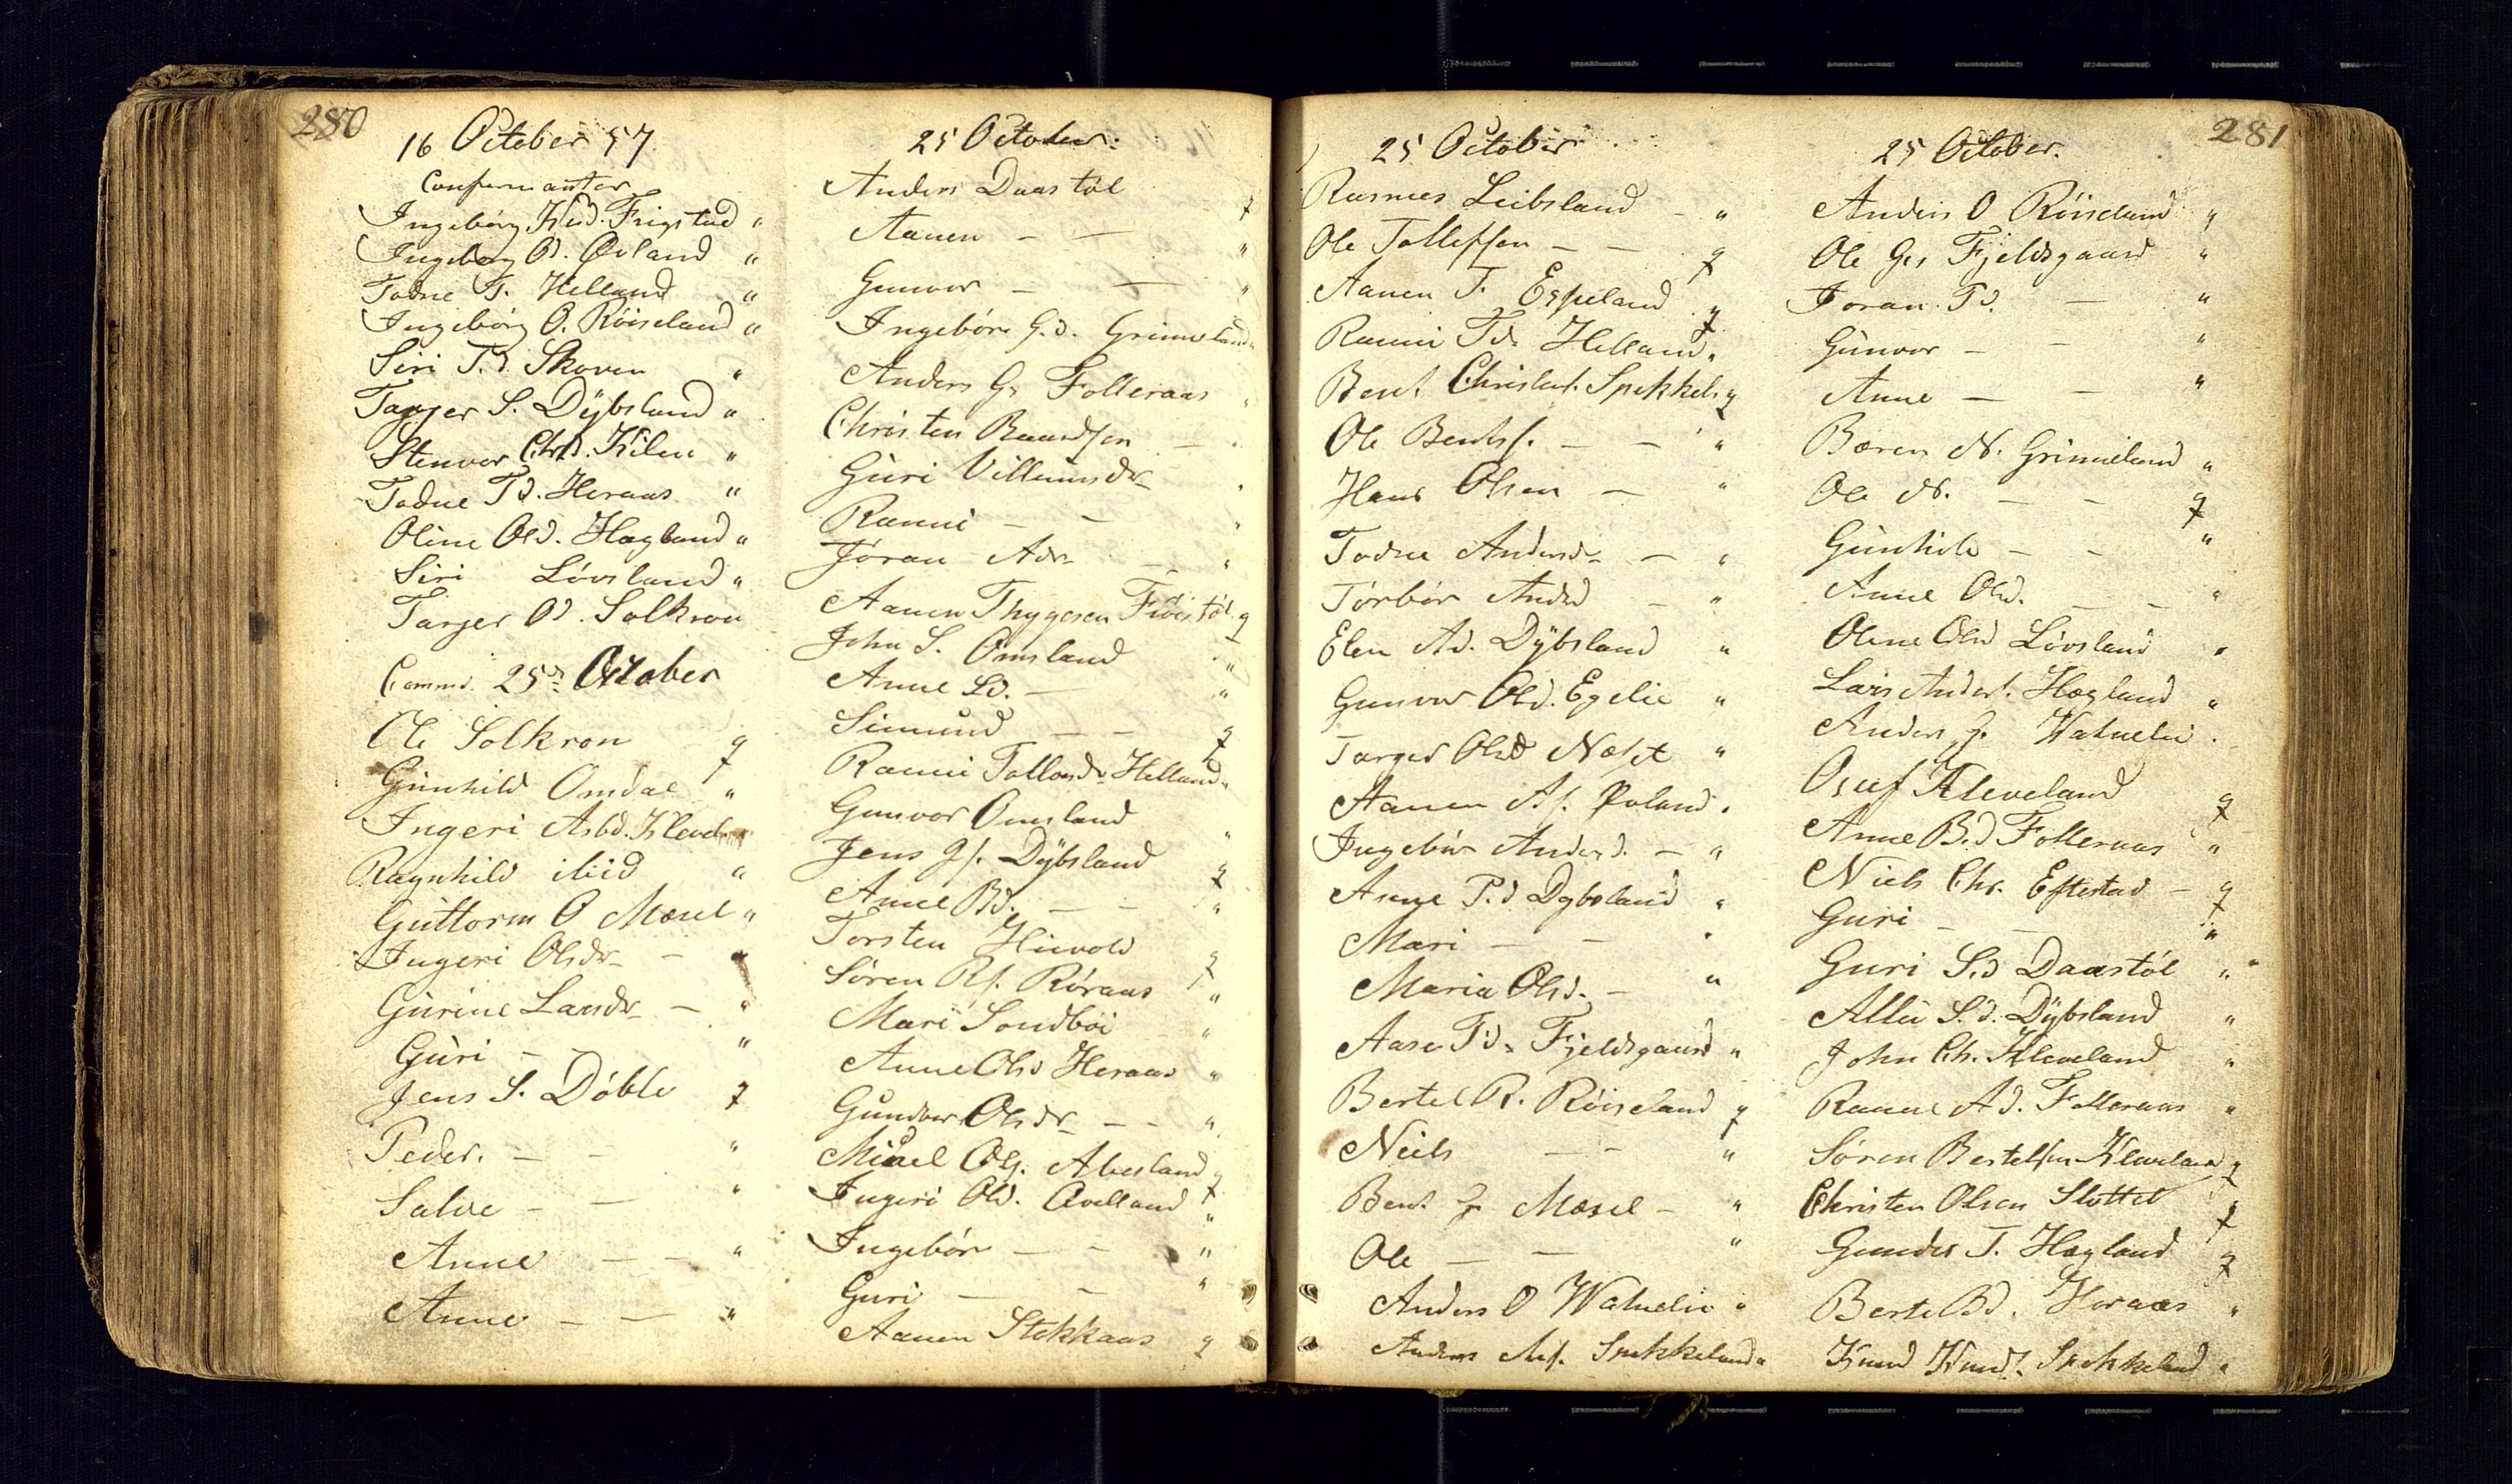 280
16 October 57
Confirmanter
Ingebørg Knd. Frigstad "
Ingeborg Od. Øvland "
Todne T. Helland "
Ingebørg O. Røiseland "
Siri T.d. Skoven "
Tarjer S. Dÿbsland "
Stenvor Chrd. Kilen "
Todne Td. Heraas "
Oline Old. Hægland "
Siri Løvsland "
Tarjer Od. Solkron
Commd. 25de October
Ole Solkron q
Gunhild Omdal "
Ingeri Asbd. Klevel
Ragnhild ibid "
Guttorm O Mæsel "
Ingeri Olsdr - "
Gurine Larsdr - "
Guri - - "
Jens S. Døble q
Peder. - - "
Salve - - "
Anne - - "
Anne - - "
25 October.
Anders Daastøl q
Aanen - - "
Gunvor - - "
Ingebør G.d. Grimeland "
Anders Gs Folleraas "
Christen Baardsen - "
Guri Villumsdr "
Ranni - - "
Jøran Adr - "
Aanen Thygesen Frøistøl q
John S. Omsland "
Anne Sd. - "
Simund - - q
Ranni Tallaksdr Helland "
Gunvor Omsland "
Jens Js. Dÿbsland q
Anne Bd. - - "
Torsten Hievold q
Søren Rs. Røraas "
Mari Sondbøi "
Anne Olsd Heraas "
Gundvor Olsdr - - "
Micael Ols. Abusland q
Ingeri Old. Qvelland "
Ingebør - - "
Guri - - "
Aanen Stokkaas q
25 October
Rasmus Leibsland - "
Ole Tollefsen - - q
Aanen T. Espeland q
Ranni Td. Helland "
Bent Christens. Spekkel. q
Ole Bents. - - "
Hans Olsen - "
Todne Andersd. - "
Tørbør Andsd - "
Elen Ad. Dÿbsland "
Gunvor Old. Egelie "
Targer Olsd Næset "
Aanen As. Øvland "
Ingebør Andersd. - "
Anne P.d Dybsland "
Mari - - "
Maria Olsd. - "
Aase Td. Fjeldsgaard "
Bertel R. Røiseland q
Niels - - "
Bent Mæsel - "
Ole - - "
Anders O Watnelie "
Anders Spekkeland "
281
25 October.
Anders O Røiseland "
Ole Gs Fjeldsgaard "
Joran Td. - "
Gunvor - - "
Anne - - "
Bæren N. Grimeland "
Ole N. - - q
Gunhild - - "
Anne Old. - - "
Oline Olsd Løvsland "
Lars Anders. Hægland "
Anders Watnelie .
Osuf Kleveland q
Anne B.d Folleraas "
Niels Chr. Eftestad - q
Guri - - "
Guri S.d Daastøl "
S.d. Dÿbsland "
John Ch. Kleveland "
Ad. Folleraas "
Søren Bertelsen Kleveland q
Christen Olsen Slottet q
Gundes T. Hægland q
Berte Bd. Heraas "
Knud Knuds. Spekkeland "